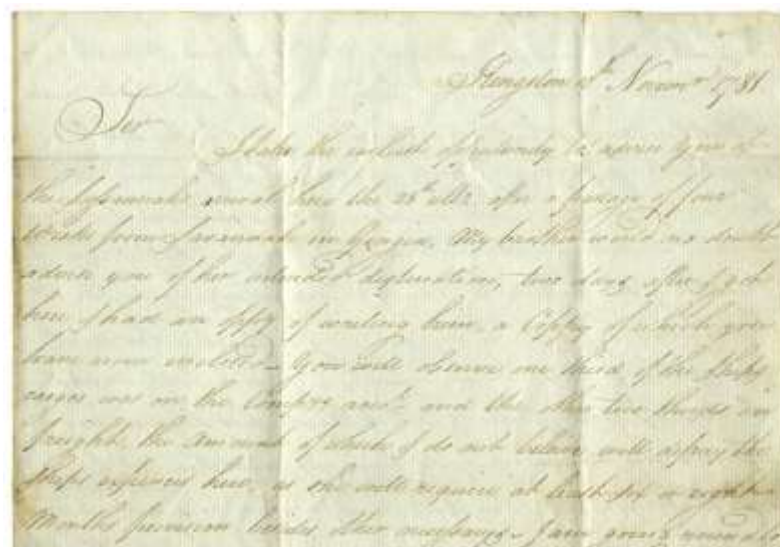 Kingston Novemr 1781
Sir
I take the earliest opportunity to advise you of
the arrival here the 28th ulto after a passage of four
Weeks from Savannah in Georgia, My brother would no doubt
advise you of her intended destination, two days after I got
here I had an oppy of writing him, a Coppy of which you
have now inclosed. You will observe one third of the Ships
cargo was on the Compys acct and the other two thirds on
freight, the amount of which I do not believe will defray the
Ships expences here, as she will require at least six or eight
Months provision besides other necessarys. I am